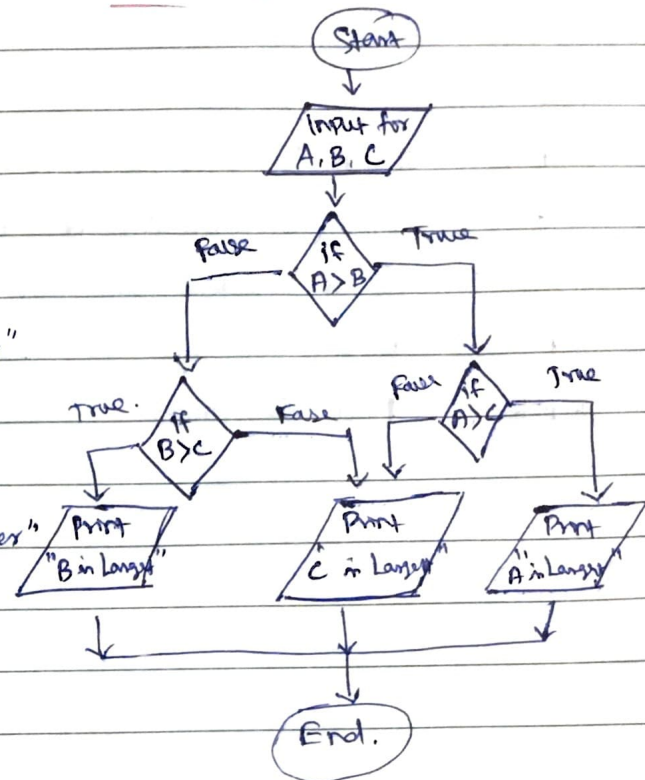 Start
Input for
A, B, C
if
A>B
False
True
"
if
B>C
True.
Fase
if
A>C
True
Print
"B in Largst"
Print
"C in Largest"
Print
"A in Largst"
End.